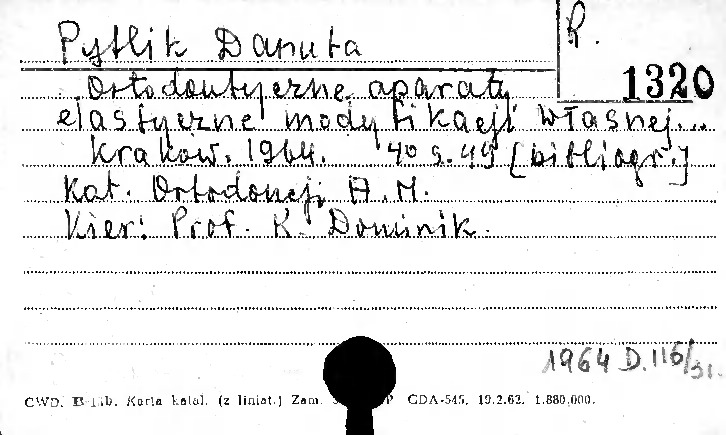 R.
1320
Pytlik Danuta
Ortodontyczne aparaty
elastyczne modyfikacji własnej...
Kraków. 1964. 40 s. 49 [bibliogr.]
Kat. Ortodoncji A.M.
Kier: Prof. K. Dominik.
1964 D. 116/31.
CWD. B-Lib. Karta katal. (z liniat.) Zam. GDA-545. 19.2.62. 1.880.000.